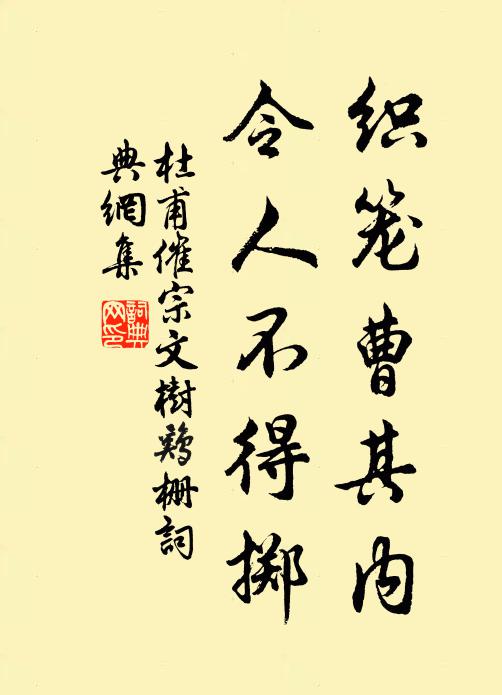 织笼曹其内
令人不得掷
杜甫催宗文樹鸡栅詞
典網集
詞典
网印